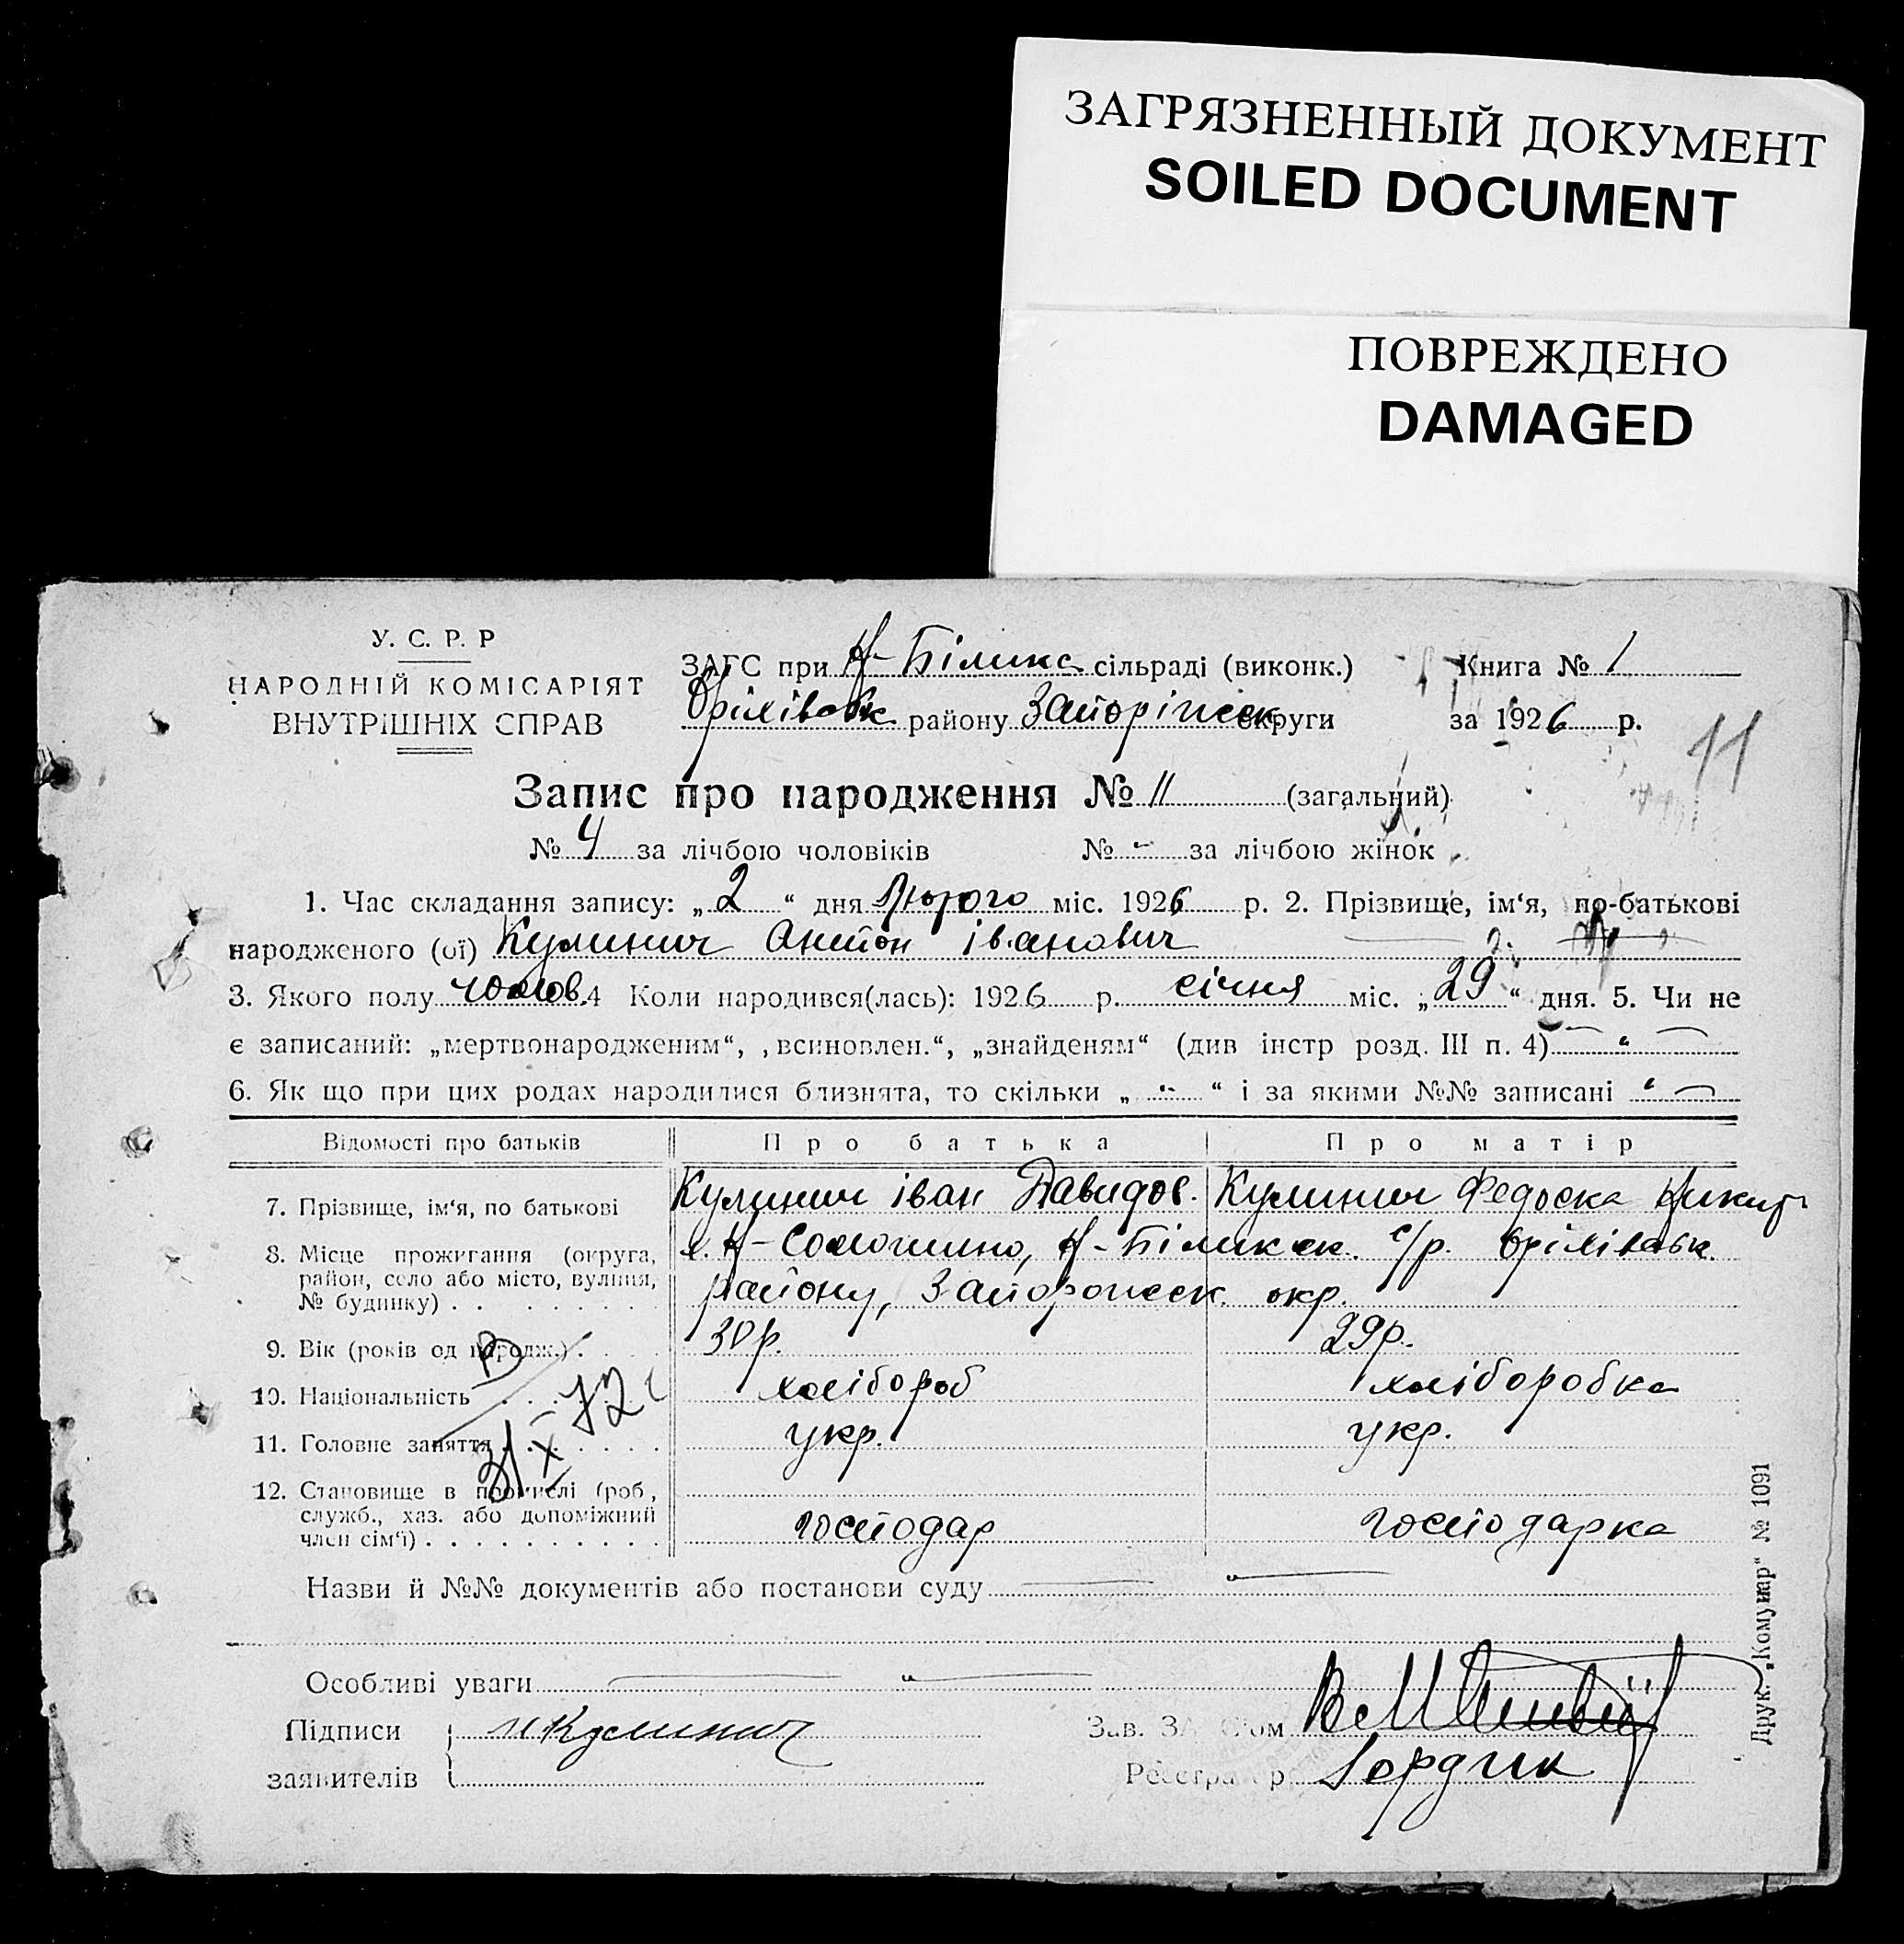 ЗАГРЯЗНЕННЫЙ ДОКУМЕНТ
SOILED DOCUMENT
ПОВРЕЖДЕНО
DAMAGED
У. С. Р. Р
НАРОДНІЙ КОМІСАРІЯТ
ВНУТРІШНІХ СПРАВ
ЗАГС при Н-Біликс сільраді (виконк.) Книга № 1
Оріхівськ району Запоріжськ округи за 1926 р.
11
Запис про народження № 11 (загальний)
№ 4 за лічбою чоловіків № - за лічбою жінок
1. Час складання запису: „2“ дня Лютого міс. 1926 р. 2. Прізвище, ім‘я, по-батькові
народженого (ої) Кулинич Антон Іванович
3. Якого полу чолов. 4 Коли народився(лась): 1926 р. січня міс. „29“ дня. 5. Чи не
є записаний: „мертвонародженим“, „всиновлен.“, „знайденям“ (див інстр розд. III п. 4) — “ —
6. Як що при цих родах народилися близнята, то скільки „ - “ і за якими №№ записані “ —
Відомості про батьків Про батька Про матір
7. Прізвище, ім‘я, по батькові Кулинич Іван Давидов. Кулинич Федоска Никит
8. Місце прожигання (округа, район, село або місто, вулиця, № будинку) . . с. Н-Солошино, Н-Біликск. с/р. Оріхівськ.
району, Запорожск. окр.
9. Вік (років од народж.) . 30 р. 29 р.
10. Національність хлібороб хліборобка
11. Головне заняття укр. укр.
31/X-72
12. Становище в промислі (роб, служб., хаз. або допоміжний член сім‘ї) господар господарка
Назви й №№ документів або постанови суду — “ —
Особливі уваги — “ —
Підписи И Кулинич Зав. ЗАГСом
заявителів Реєстратор Гордик
Друк. „Комунар“ № 1091